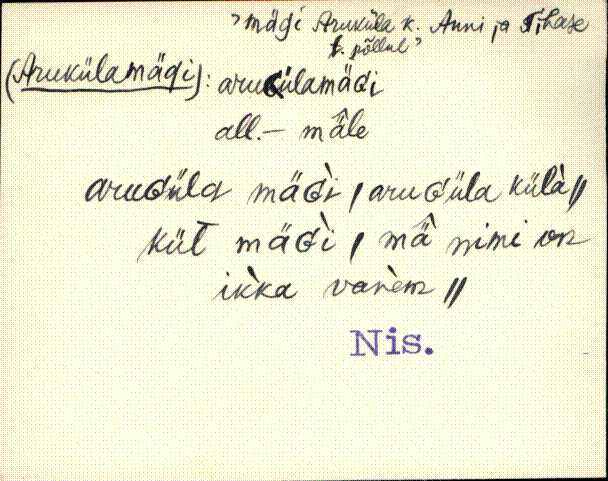 'mägi Aruküla k. Anni ja Tihase
t. põllul'
(Arukülamägi): aruGülamäGi
all. – mä̂le
aruGüla mäG̀i / aruGüla külà //
küĺ mäG̀i / mä̂ nimi on
ik̀ka vaǹem //
Nis.